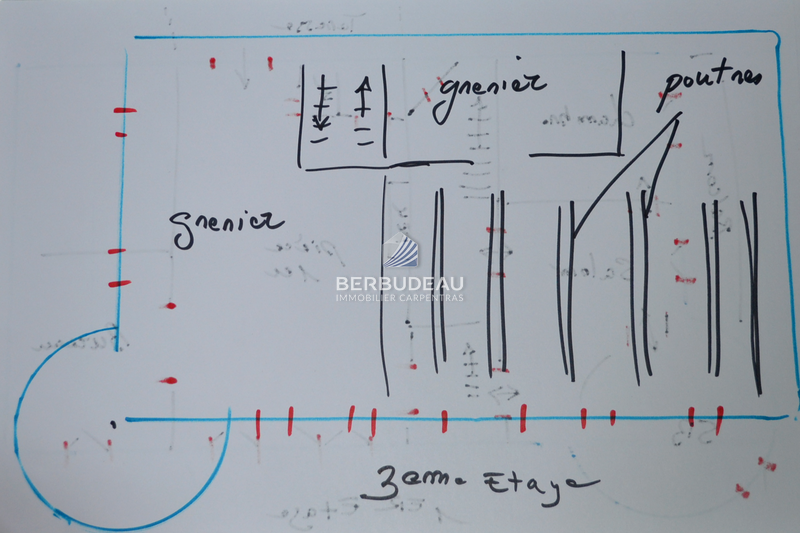 grenier
poutres
grenier
BERBUDEAU
IMMOBILIER CARPENTRAS
3eme Etage